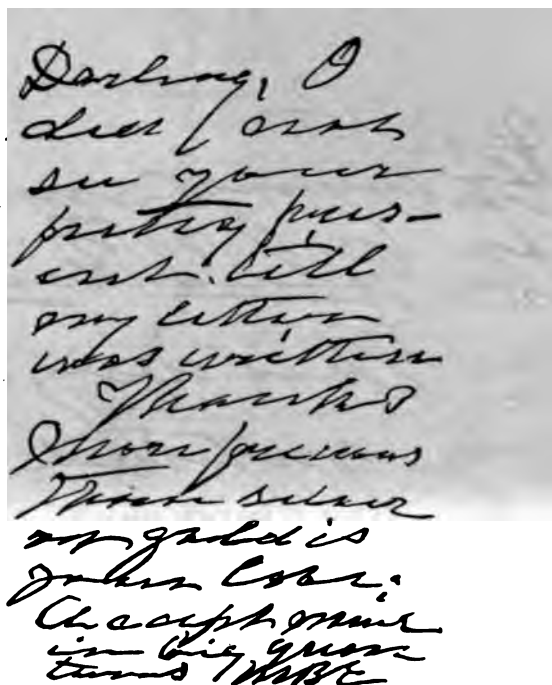 Darling, I
did not
see your
pretty pres-
ent till
my letter
was written
Thanks
more precious
than silver
or gold is
your love.
Accept mine
in big
MBE